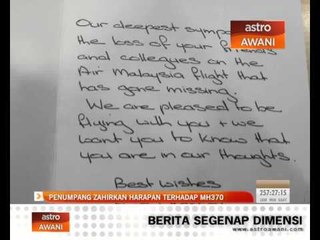 Our deepest
the loss of your friends
and collegues on the
Air Malaysia flight that
has gone missing.
We are pleased to be
flying with you + we
want you to know that
you are in our thoughts.
Best Wishes
astro
AWANI
PENUMPANG ZAHIRKAN HARAPAN TERHADAP MH370
257:27:15
astro
AWANI
BERITA SEGENAP DIMENSI
www.astroawani.com